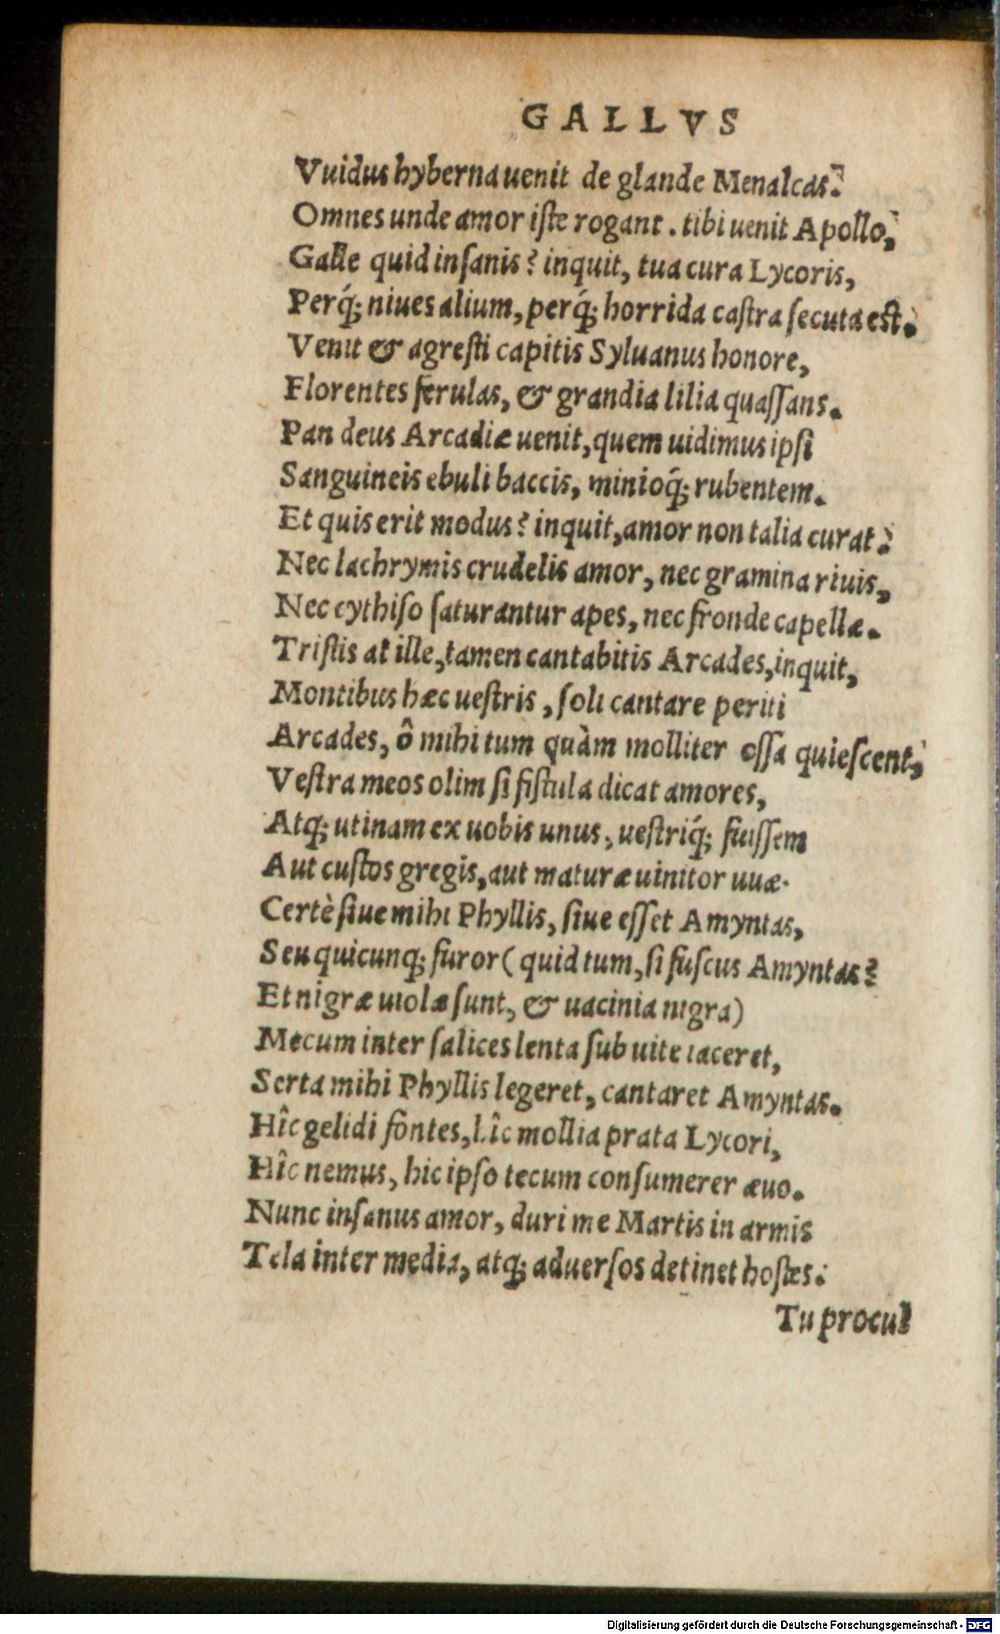 GALLVS
Vuidus hyberna uenit de glande Menalcas?
Omnes unde amor iste rogant. tibi uenit Apollo,
Galle quid insanis? inquit, tua cura Lycoris,
Perq́; niues alium, perq́; horrida castra secuta est.
Venit & agresti capitis Syluanus honore,
Florentes ferulas, & grandia lilia quassans.
Pan deus Arcadiæ uenit, quem uidimus ipsi
Sanguineis ebuli baccis, minioq́; rubentem.
Et quis erit modus? inquit, amor non talia curat?
Nec lachrymis crudelis amor, nec gramina riuis,
Nec cythiso saturantur apes, nec fronde capellæ.
Tristis at ille, tamen cantabitis Arcades, inquit,
Montibus hæc uestris, soli cantare periti
Arcades, ô mihi tum quàm molliter ossa quiescent,
Vestra meos olim si fistula dicat amores,
Atq; utinam ex uobis unus, uestriq́; fuissem
Aut custos gregis, aut maturæ uinitor uuæ.
Certè siue mihi Phyllis, siue esset Amyntas,
Seu quicunq; furor (quid tum, si fuscus Amyntas?
Et nigræ uiolæ sunt, & uacinia nigra)
Mecum inter salices lenta sub uite iaceret,
Serta mihi Phyllis legeret, cantaret Amyntas.
Hîc gelidi fontes, hîc mollia prata Lycori,
Hîc nemus, hic ipso tecum consumerer æuo.
Nunc insanus amor, duri me Martis in armis
Tela inter media, atq; aduersos detinet hostes.
Tu procul
Digitalisierung gefördert durch die Deutsche Forschungsgemeinschaft - DFG